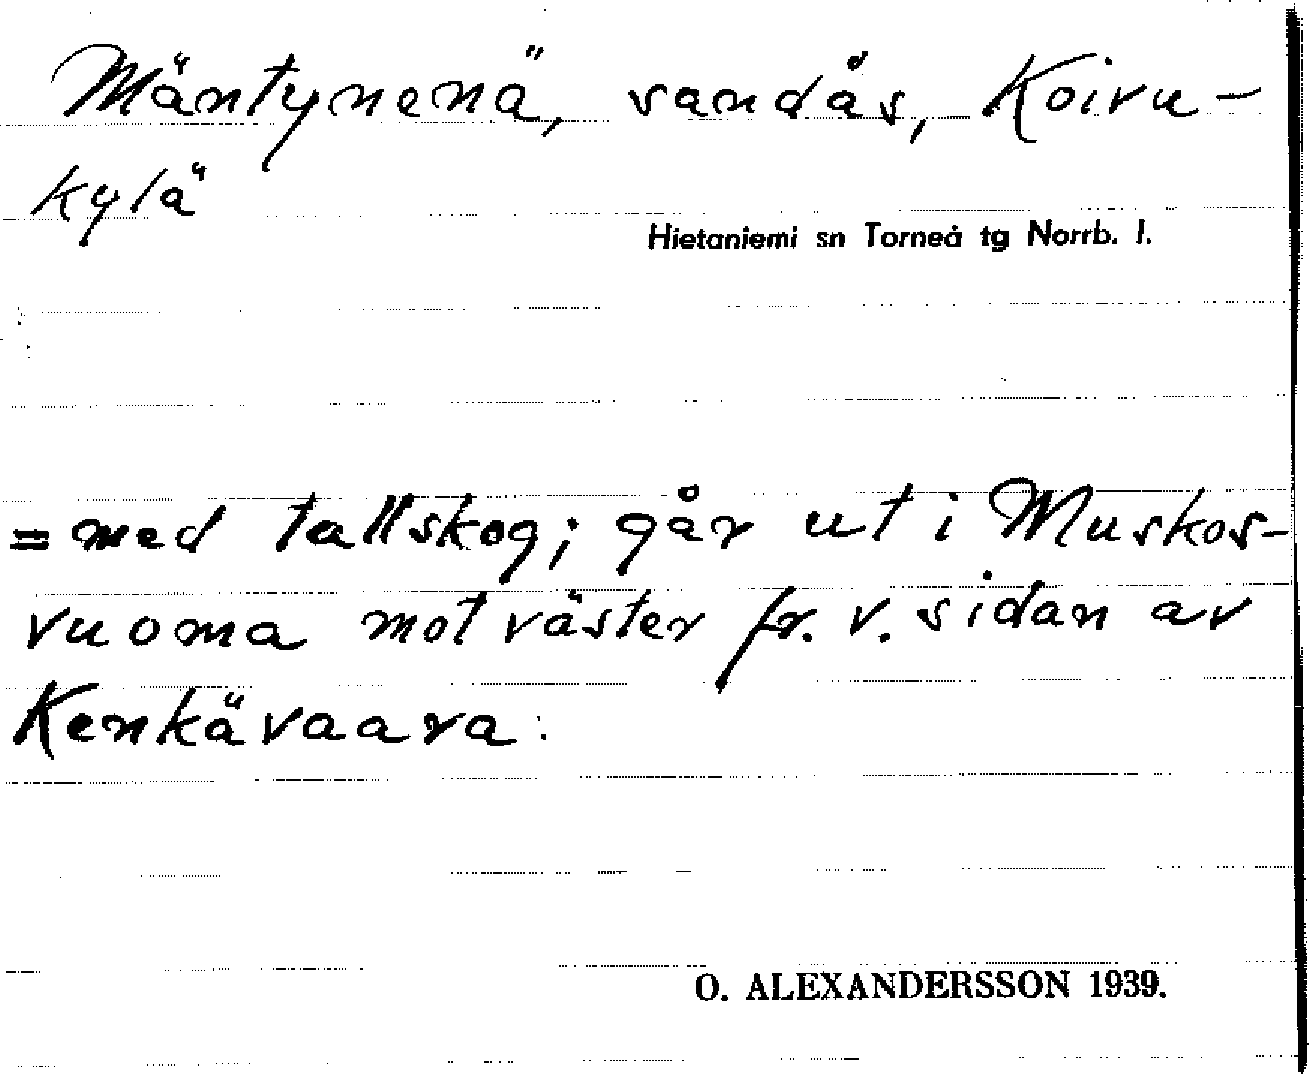 Mäntynenä, sandås, Koivu-
kylä
Hietaniemi sn Torneå tg Norrb. l.
= med tallskog; går ut i Muskos-
vuoma mot väster fr. v. sidan av
Kenkävaara.
O. ALEXANDERSSON 1939.